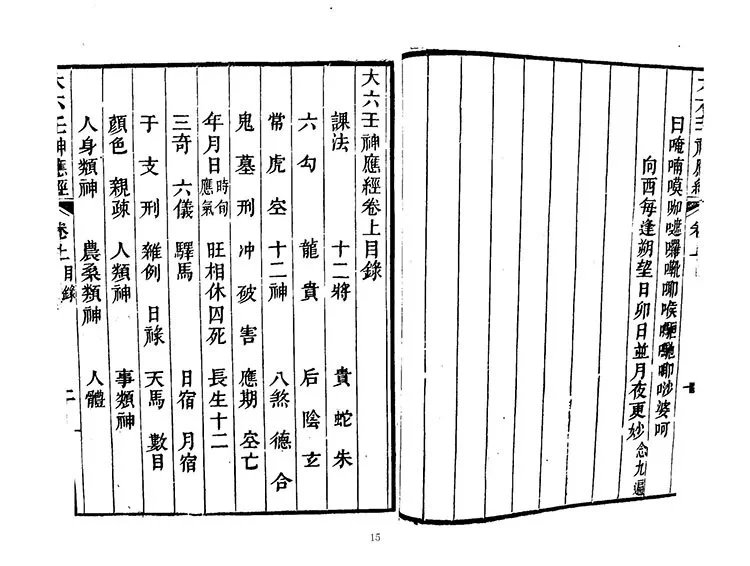 曰唵喃嗼
向酉每逢朔望日卯日並月夜更妙念九遍
大六壬神應經卷上目錄
課法 十二將 貴蛇朱
六勾 龍貴 后陰玄
常虎空 十二神 八煞德合
鬼墓刑 冲破害 應期空亡
年月日時旬應氣 旺相休囚死 長生十二
三奇六儀 驛馬 日宿月宿
干支刑 雜例 日祿 天馬 數目
顏色 親疎 人類神 事類神
人身類神 農桑類神 人體
大六壬神應經 卷上目錄 二
15